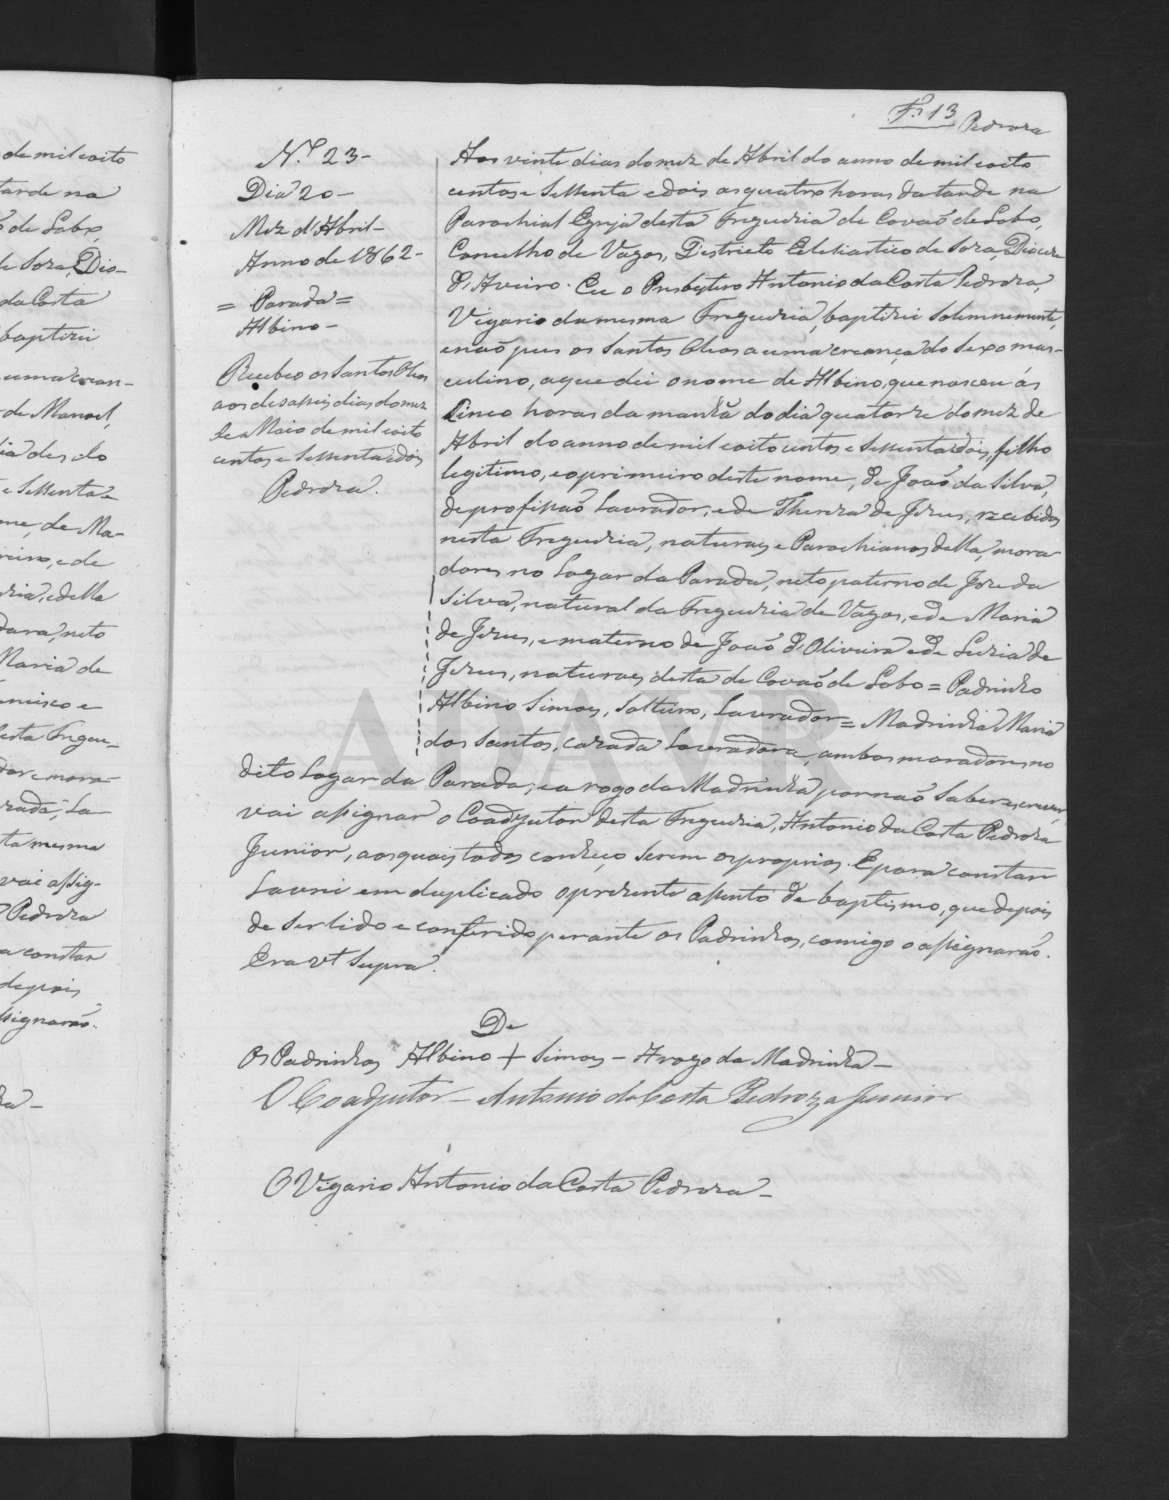 de mil oito
tarde na
de Lobo,
de Soza, Dio-
da Costa
baptizei
uma crean-
de Manoel,
dia des do
e sessenta e
me, de Ma-
reiro, e de
della
dara, neto
Maria de
e
esta Fregue-
mora-
La-
ta mesma
vai assig-
Pedroza
a constar
depois
ssignarão.
Fs 13 Pedroza
N.º 23-
Dia 20-
Mez d'Abril-
Anno de 1862-
= Parada =
Albino-
Recebeo os Santos Oleos
aos desaseis dias do mez
de Maio de mil oito
centos e sessenta e dois
Pedroza.
Aos vinte dias do mez de Abril do anno de mil e oito
centos e sessenta e dois as quatro horas da tarde na
Parochial Egreja desta Freguezia de Covaõ de Lobo,
Concelho de Vagos, Destricto Eclesiastico de Soza, Diocese
d'Aveiro. Eu o Presbytero Antonio da Costa Pedroza,
Vigario da mesma Freguezia, baptizei solemnemente,
e naõ pus os Santos Oleos a uma creança do sexo mas-
culino, a que dei o nome de Albino, que nasceu ás
cinco horas da manhã do dia quatorze do mez de
Abril do anno de mil e oito centos e sessenta e dois, filho
legitimo, e o primeiro deste nome, de Joaõ da Silva,
de profissaõ Lavrador, e de Thereza de Jesus, recebidos
nesta Freguezia, naturaes e Parochianos della, mora
dores no Lugar da Parada, neto paterno de Joze da
Silva, natural da Freguezia de Vagos, e de Maria
de Jesus, e materno de Joaõ d'Oliveira e de Luzia de
Jesus, naturaes desta de Covaõ de Lobo = Padrinho
Albino Simoes, Solteiro, Lavrador = Madrinha Maria
dos Santos, cazada Lavradora, ambos moradores no
dito Lugar da Parada, e a rogo da Madrinha por naõ saber escrever,
vai assignar o Coadjutor desta Freguezia, Antonio da Costa Pedroza
Junior, aos quaes todos conheço serem os proprios. E para constar
Lavrei em duplicado o prezente assento de baptismo, que depois
de ser lido e conferido perante os Padrinhos, comigo o assignaraõ.
Era vt supra.
De
Os Padrinhos Albino + Simoes - A rogo da Madrinha -
O Coadjutor - Antonio da Costa Pedroza Junior
O Vigario Antonio da Costa Pedroza -
ADAVR